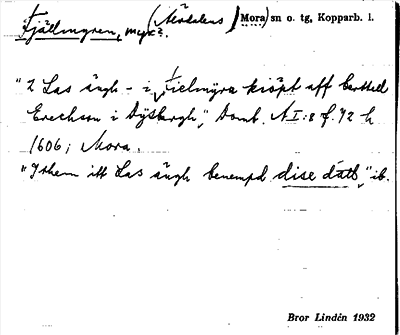 Fjällmyren, myr?. (Mödalens) (Mora) sn o. tg, Kopparb. l.
"2 Las ängh - i, Fielmÿra kiöpt aff berthill
Erechsson i Dÿsbergh", Domb. AI:8 f. 92 h
1606; Mora.
"Ithem itt Las ängh benempd dise dätt", ib.
Bror Lindén 1932